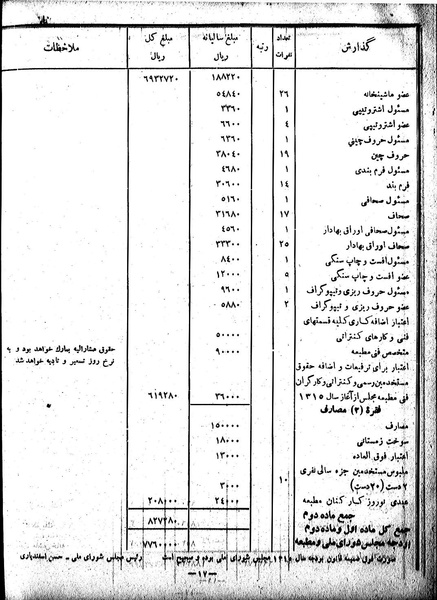 گذارش	تعداد نفرات	رتبه	مبلغ سالیانه ریال	مبلغ کل ریال	ملاحظات
۱۸۸۲۲۰	۶۹۳۲۷۲۰
عضو ماشینخانه	۲۶	۵۴۸۴۰
مسئول اشتروتیپی	۱	۳۳۶۰
عضو اشتروتیپی	۴	۶۶۰۰
مسئول حروف چینی	۱	۶۳۶۰
حروف چین	۱۹	۳۸۰۴۰
مسئول فرم بندی	۱	۴۶۸۰
فرم بند	۱۴	۳۰۶۰۰
مسئول صحافی	۱	۵۱۶۰
صحاف	۱۷	۳۱۶۸۰
مسئول صحافی اوراق بهادار	۱	۴۵۶۰
صحاف اوراق بهادار	۲۵	۳۳۳۰۰
مسئول افست و چاپ سنگی	۱	۸۴۰۰
عضو افست و چاپ سنگی	۵	۱۲۰۰۰
مسئول حروف ریزی و تیپوگراف	۱	۹۶۰۰
عضو حروف ریزی و تیپوگراف	۲	۵۸۸۰
اعتبار اضافه کاری کلیه قسمتهای
فنی و کارهای کنتراتی	۵۰۰۰۰
متخصص فنی مطبعه	۹۰۰۰۰	حقوق مشارالیه بمارك خواهد بود و به
نرخ روز تسعیر و تادیه خواهد شد
اعتبار برای ترفیعات و اضافه حقوق
مستخدمین رسمی و کنتراتی و کارگران
فنی مطبعه مجلس از آغاز سال ۱۳۱۵	۳۶۰۰۰	۶۱۹۲۸۰
فقرهٔ (۲) مصارف
مصارف	۱۵۰۰۰۰
سوخت زمستانی	۱۸۰۰۰
اعتبار فوق العاده	۱۳۰۰۰
ملبوس مستخدمین جزء سالی نفری
۲ دست (۲۰ دست)	۱۰	۳۰۰۰
عیدی نوروز کارکنان مطبعه	۲۴۰۰۰	۲۰۸۰۰۰
جمع ماده دوم	۸۲۷۲۸۰
جمع کل ماده اول و ماده دوم
بودجه مجلس شورای ملی و مطبعه	۷۷۶۰۰۰۰
صورت فوق ضمیمه قانون بودجه سال مجلس شورای ملی بوده و صحیح است رئیس مجلس شورای ملی - حسن اسفندیاری
—۱۷—